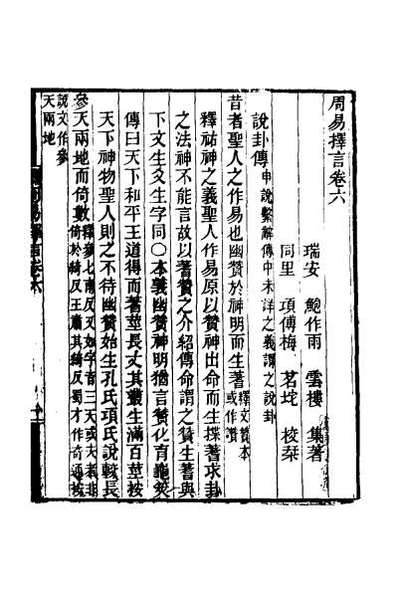 周易擇言卷六
瑞安　鮑作雨　雲樓　集著
同里　項傅梅　茗垞　校栞
說卦傳申說繫辭傳中未詳之義謂之說卦
昔者聖人之作易也幽贊於神明而生蓍釋文贊本或作讚
釋祐神之義聖人作易原以贊神出命而生揲蓍求卦
之法神不能言故以蓍贊之介紹傳命謂之贊生蓍與
下文生爻生字同〇本義幽贊神明猶言贊化育龜筴
傳曰天下和平王道得而蓍莖長丈其叢生滿百莖按
天下神物聖人則之不待幽贊始生孔氏項氏說較長
參天兩地而倚數釋參七南反又如字音三天或夫者非倚於綺反王肅其綺反蜀才作奇通按
說文作參
天兩地
周易擇言卷六